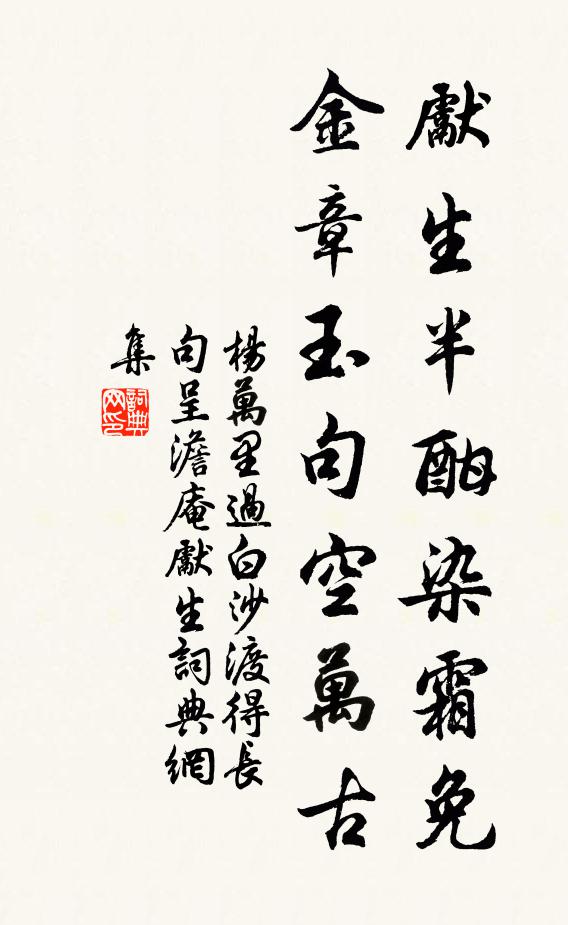 獻生半酣染霜兔
金章玉句空萬古
楊萬里過白沙渡得長
句呈澹庵獻生詞典網
集
詞典
网印